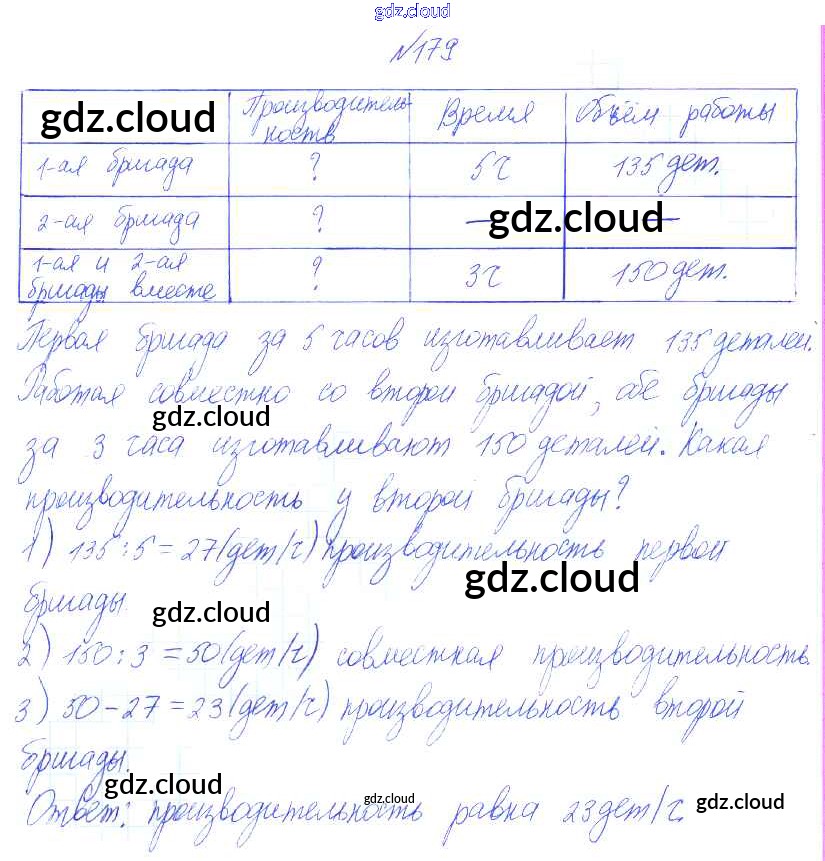 gdz.cloud
№179
gdz.cloud Производитель- Время Объём работы
ность
1-ая бригада ? 5ч 135 дет.
2-ая бригада ? — gdz.cloud —
1-ая и 2-ая
бригады вместе ? 3ч 150 дет.
Первая бригада за 5 часов изготавливает 135 деталей.
Работая совместно со второй бригадой, обе бригады
gdz.cloud
за 3 часа изготавливают 150 деталей. Какая
производительность у второй бригады?
1) 135:5=27(дет/ч) производительность первой
gdz.cloud
бригады
gdz.cloud
2) 150:3=50(дет/ч) совместная производительность.
3) 50-27=23(дет/ч) производительность второй
бригады.
gdz.cloud
Ответ: производительность равна 23дет/ч.
gdz.cloud
gdz.cloud